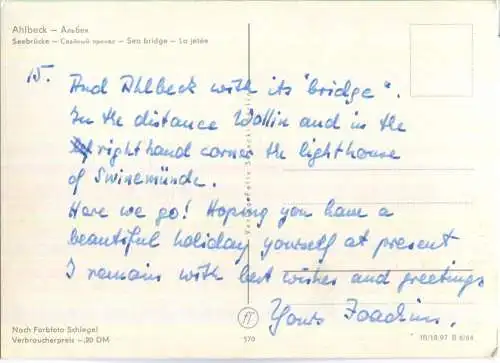 Ahlbeck — Альбек
Seebrücke — Свайный причал — Sea bridge — La jetée
15. And Ahlbeck with its "bridge".
In the distance Wollin and in the
right hand corner the lighthouse
of Swinemünde.
Here we go! Hoping you have a
beautiful holiday yourself at present
I remain with best wishes and greetings
Yours Joachim.
Nach Farbfoto Schlegel
Verbraucherpreis -,20 DM
570
10/10.97 B 6/64